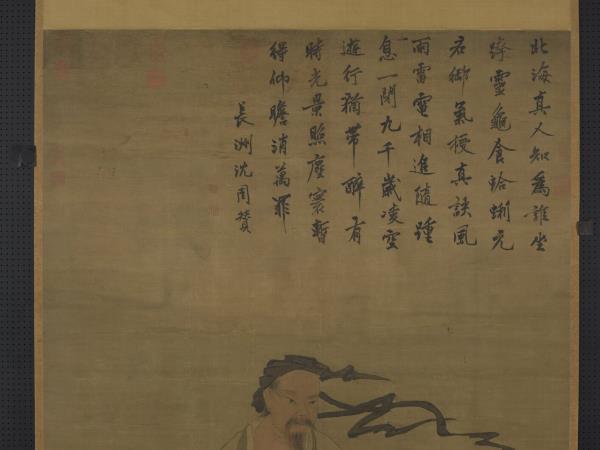 北海真人知爲誰坐
跨靈龜食蛤蜊元
君御氣授真訣風
雨雷電相追隨踵
息一閉九千歲凌空
遊行猶帶醉有
時光景照塵寰暫
得仰瞻消萬罪
長洲沈周贊